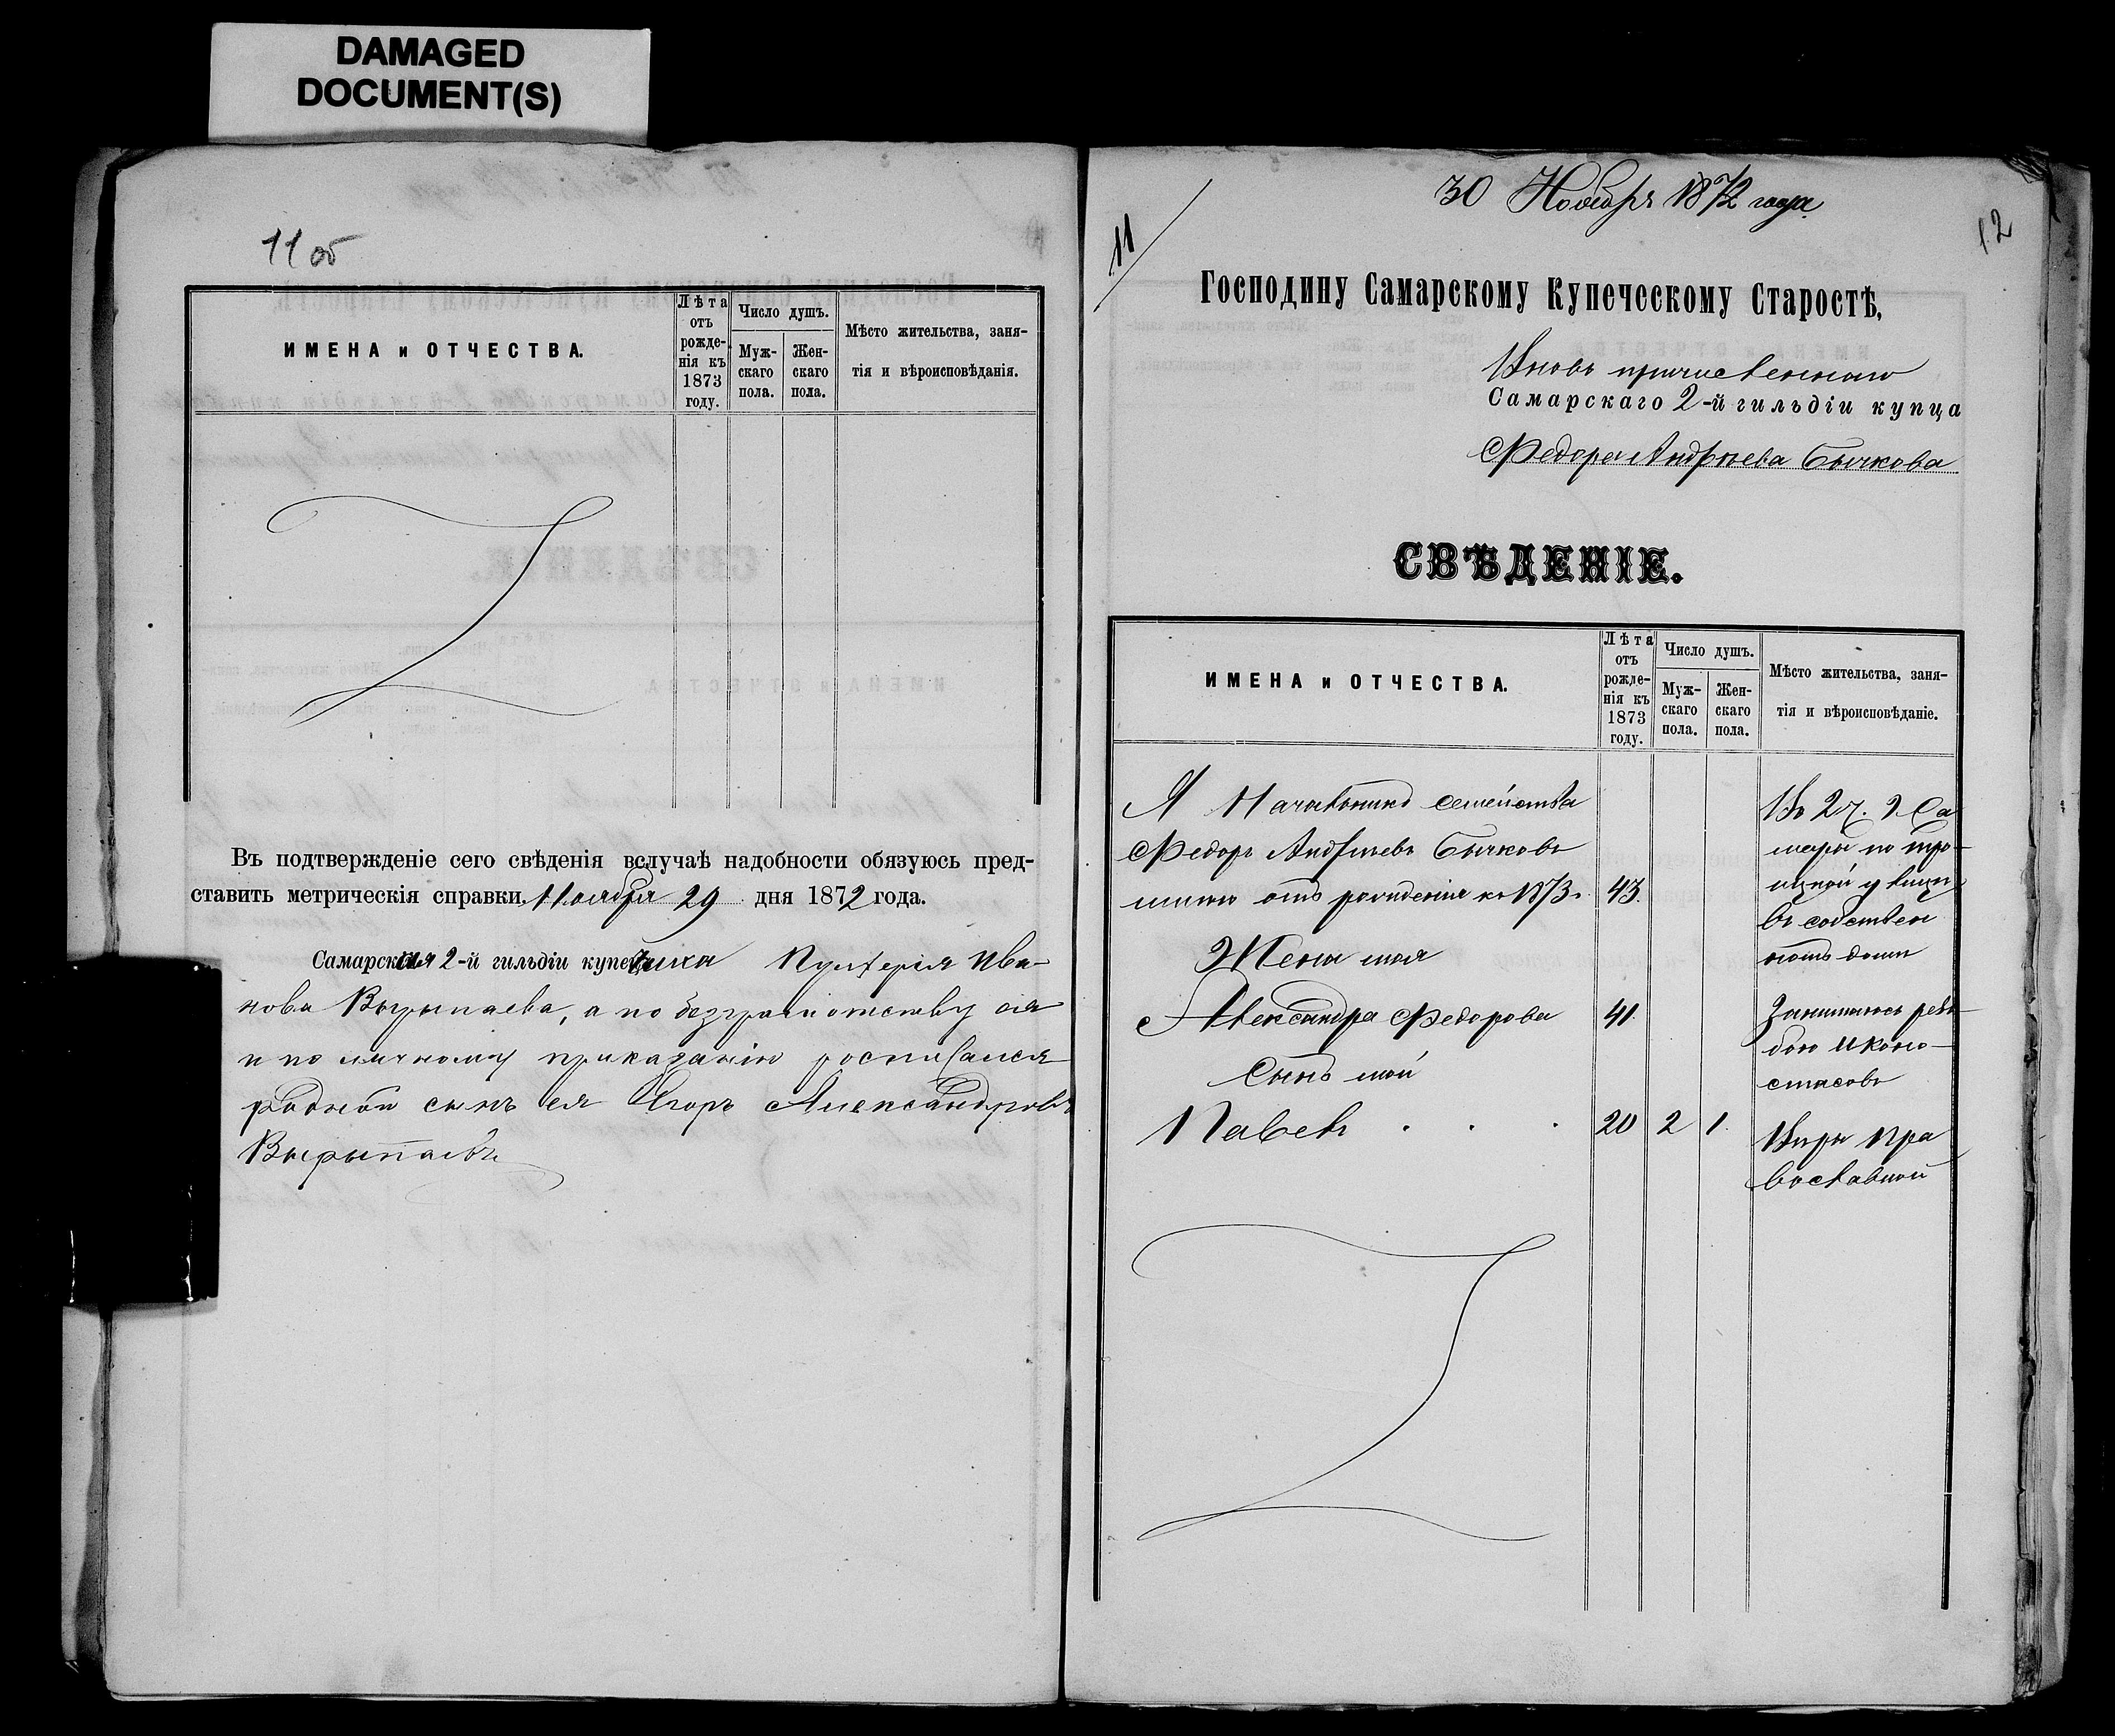 DAMAGED
DOCUMENT(S)
11 об
ИМЕНА и ОТЧЕСТВА.
Лѣта
отъ
рожде-
нія къ
1873
году.
Число душъ.
Муж-
скаго
пола.
Жен-
скаго
пола.
Мѣсто жительства, заня-
тія и вѣроисповѣданія.
Въ подтвержденіе сего свѣденія вслучаѣ надобности обязуюсь пред-
ставить метрическія справки. Ноября 29 дня 1872 года.
Самарская 2-й гильдіи купчиха Пулхерія Ива-
нова Вырыпаева, а по безграмотству ея
и по личному приказанію росписался
родной сынъ ея Егоръ Александровъ
Вырыпаевъ
30 Ноября 1872 года
11
12
Господину Самарскому Купеческому Старостѣ,
Вновь причисленнаго
Самарскаго 2-й гильдіи купца
Федора Андрѣева Бычкова
СВѢДЕНІЕ.
ИМЕНА и ОТЧЕСТВА.
Лѣта
отъ
рожде-
нія къ
1873
году.
Число душъ.
Муж-
скаго
пола.
Жен-
скаго
пола.
Мѣсто жительства, заня-
тія и вѣроисповѣданіе.
Я Начальникъ семейства
Федоръ Андрѣевъ Бычковъ
имѣю отъ рожденія къ 1873 г. 43.
Жена моя
Александра Федорова 41.
Сынъ мой
Павелъ . . . 20 2 1.
Въ 2 ч. г Са
мары по тро-
ицкой улицѣ
въ собствен
номъ домѣ
Занимаюсь резь-
бою Иконо-
стасовъ
Вѣры Пра
вославной